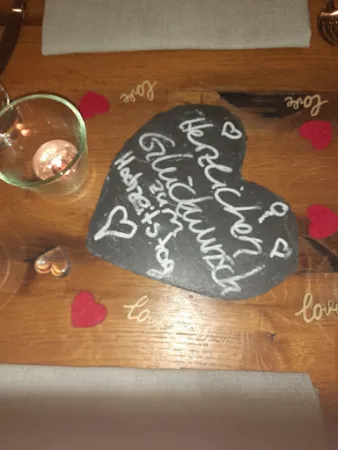 love
love
Herzlichen
Glückwunsch
zum
Hochzeitstag
love
love